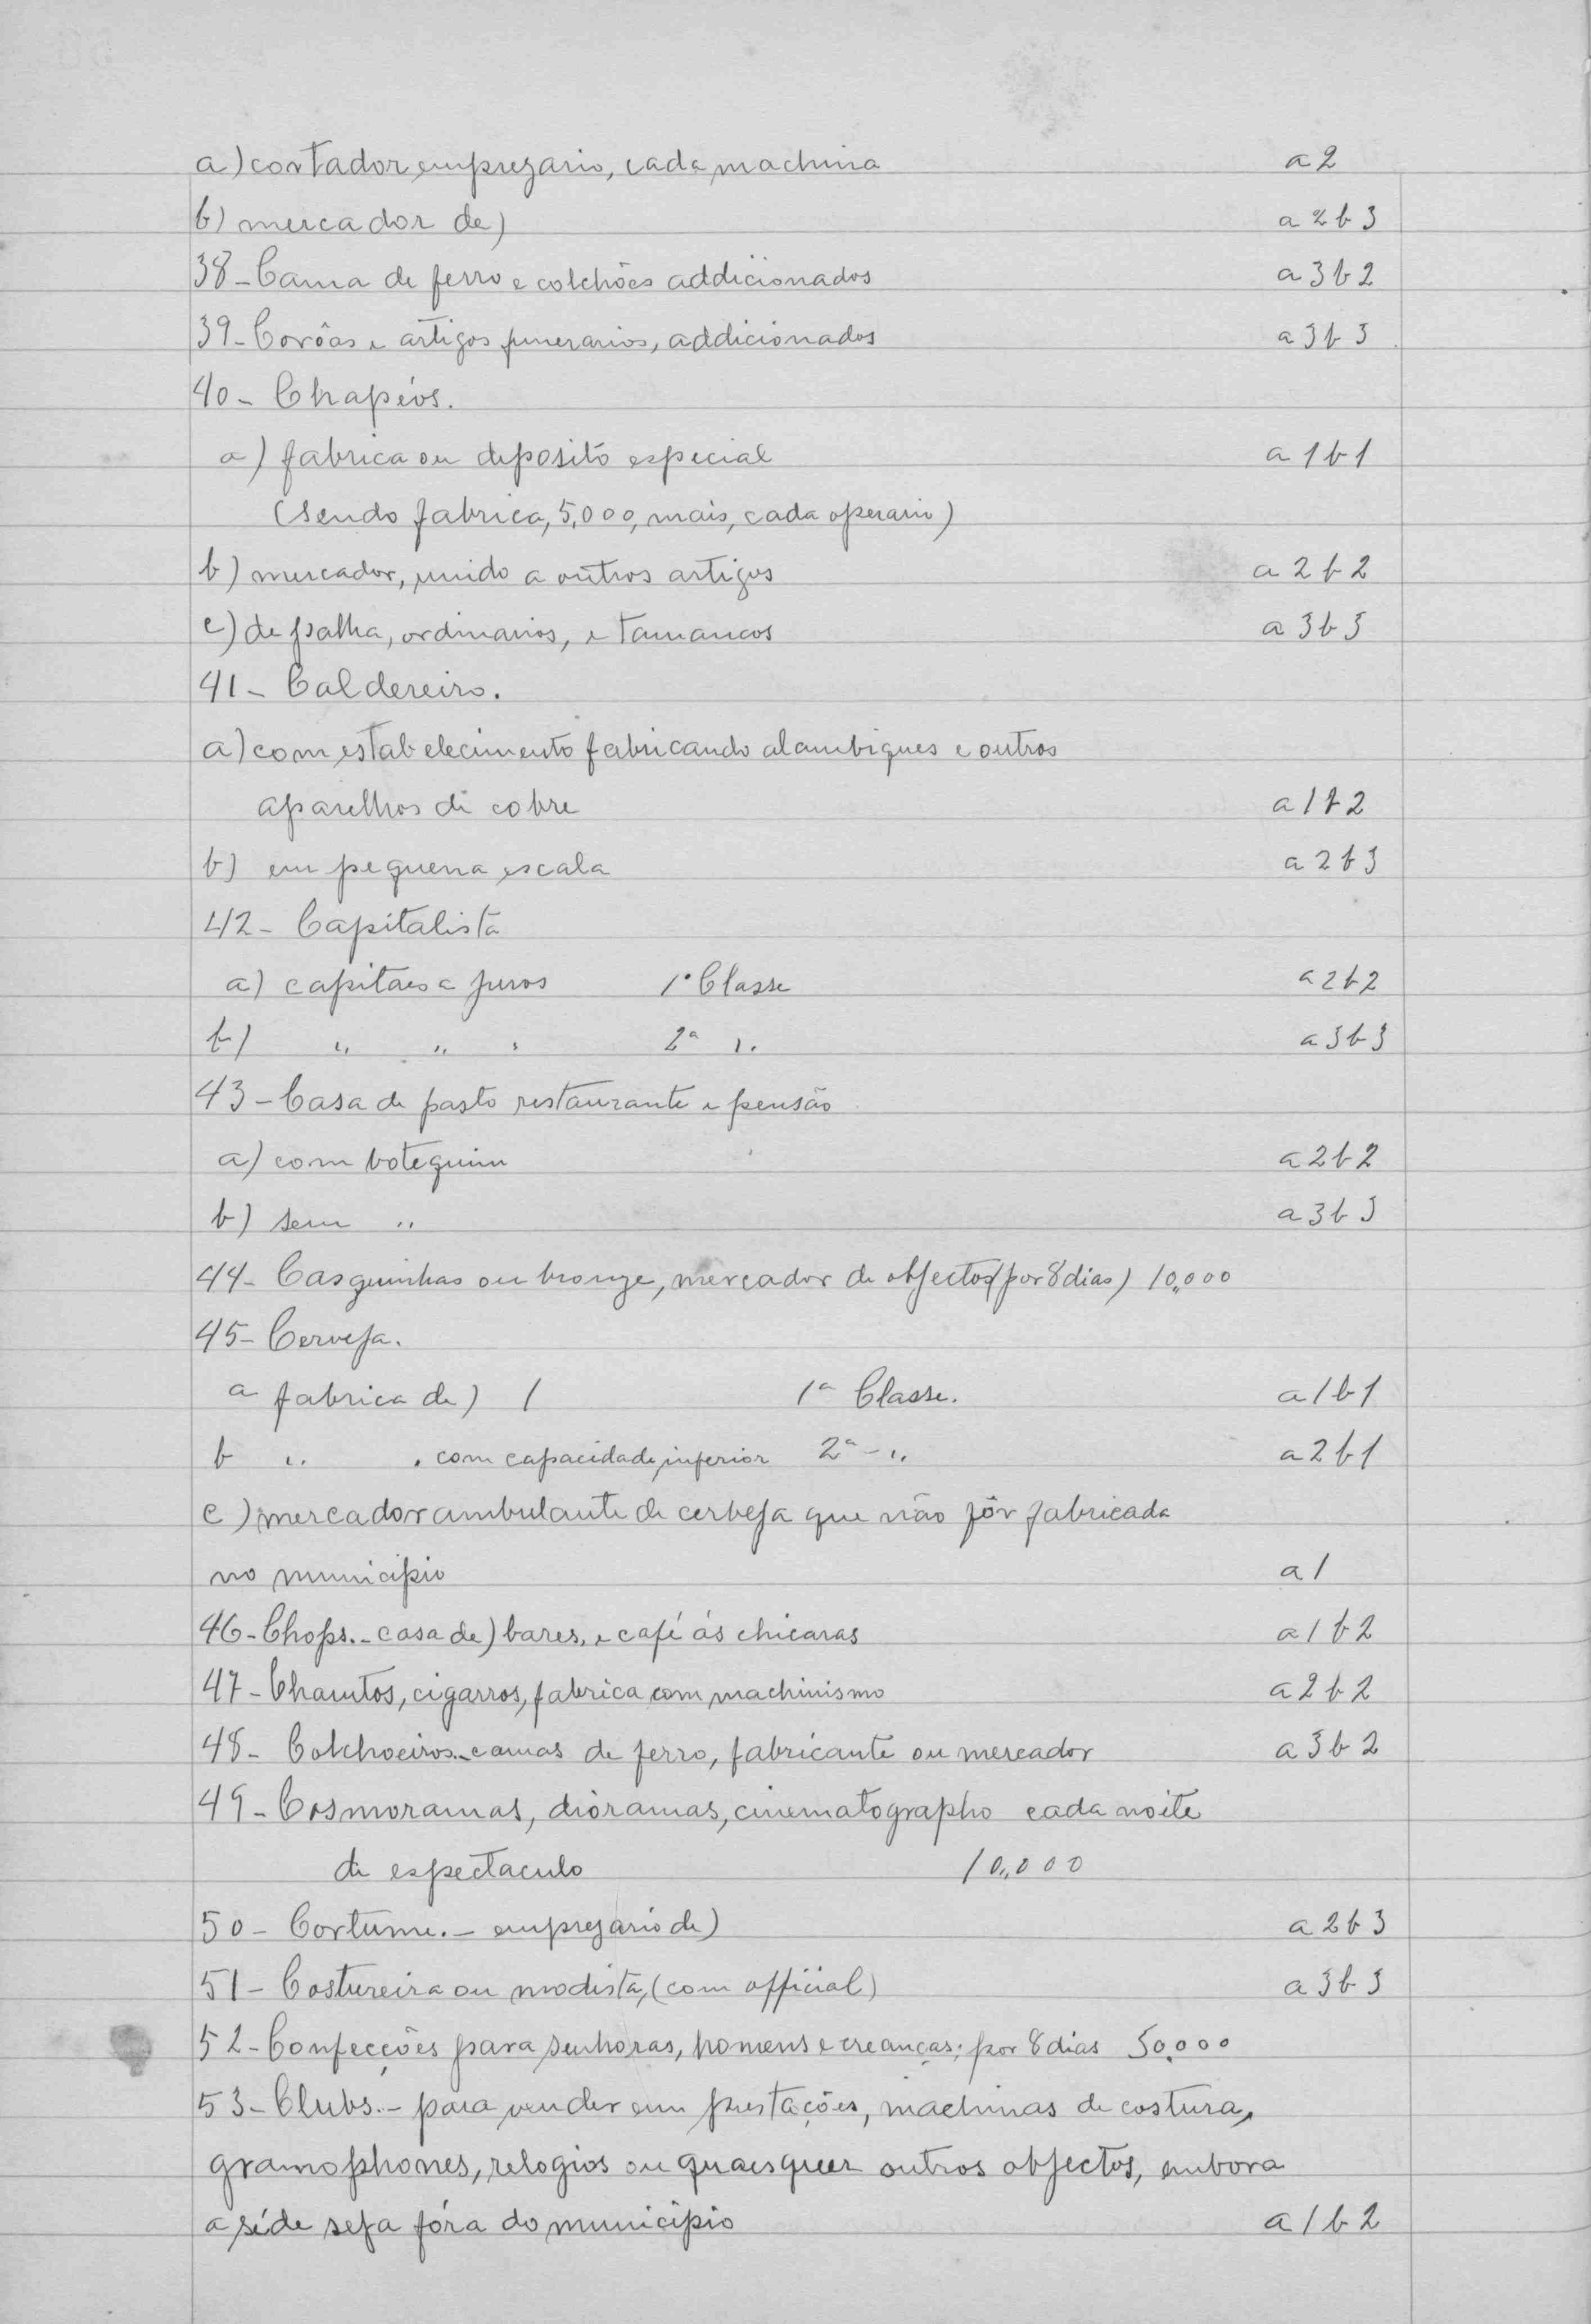 a) cortador, emprezario, cada machina a 2
b) mercador de) a 2 b 3
38 - Cama de ferro e colchões addicionados a 3 b 2
39 - Corôas e artigos funerarios, addicionados a 3 b 3
40 - Chapéos.
a) fabrica ou deposito especial a 1 b 1
(sendo fabrica, 5,000, mais, cada operario)
b) mercador, unido a outros artigos a 2 b 2
c) de palha, ordinarios, e tamancos a 3 b 3
41 - Caldereiro.
a) com estabelecimento fabricando alambiques e outros
aparelhos de cobre a 1 b 2
b) em pequena escala a 2 b 3
42 - Capitalista
a) capitaes a juros 1ª Classe a 2 b 2
b) " " " 2ª " a 3 b 3
43 - Casa de pasto restaurante e pensão
a) com botequim a 2 b 2
b) sem " a 3 b 3
44 - Casquinhas ou bronze, mercador de objectos (por 8 dias) 10,,000
45 - Cerveja.
a fabrica de) / 1ª Classe. a 1 b 1
b " " com capacidade inferior 2ª - " a 2 b 1
c) mercador ambulante de cerveja que não fôr fabricada
no municipio a 1
46 - Chops. - casa de) bares, e café ás chicaras a 1 b 2
47 - Charutos, cigarros, fabrica com machinismo a 2 b 2
48 - Colchoeiros. - camas de ferro, fabricante ou mercador a 3 b 2
49 - Cosmoramas, dioramas, cinematographo cada noite
de espectaculo 10,,000
50 - Cortume. - emprezario de) a 2 b 3
51 - Costureira ou modista, (com official) a 3 b 3
52 - Confecções para senhoras, homens e creanças; por 8 dias 50,000
53 - Clubs. - para vender em prestações, machinas de costura,
gramophones, relogios ou quaesquer outros objectos, embora
a séde seja fóra do municipio a 1 b 2